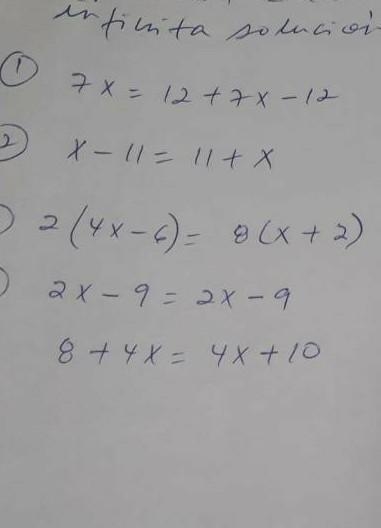 infinita solución
① 7x = 12 + 7x - 12
② x - 11 = 11 + x
) 2(4x - 6) = 8(x + 2)
) 2x - 9 = 2x - 9
8 + 4x = 4x + 10